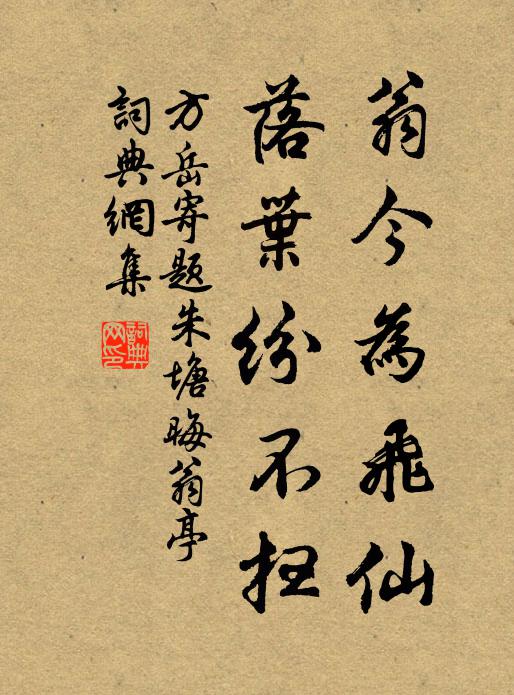 翁今為飛仙
落葉紛不掃
方岳寄題朱塘晦翁亭
詞典網集
詞典網印